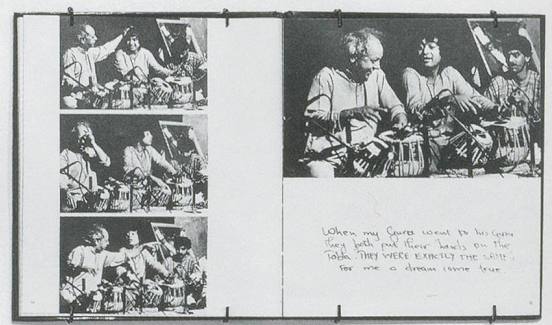 When my Guru went to his Guru
they both put their hands on the
Tabla. THEY WERE EXACTLY THE SAME!
For me a dream come true.